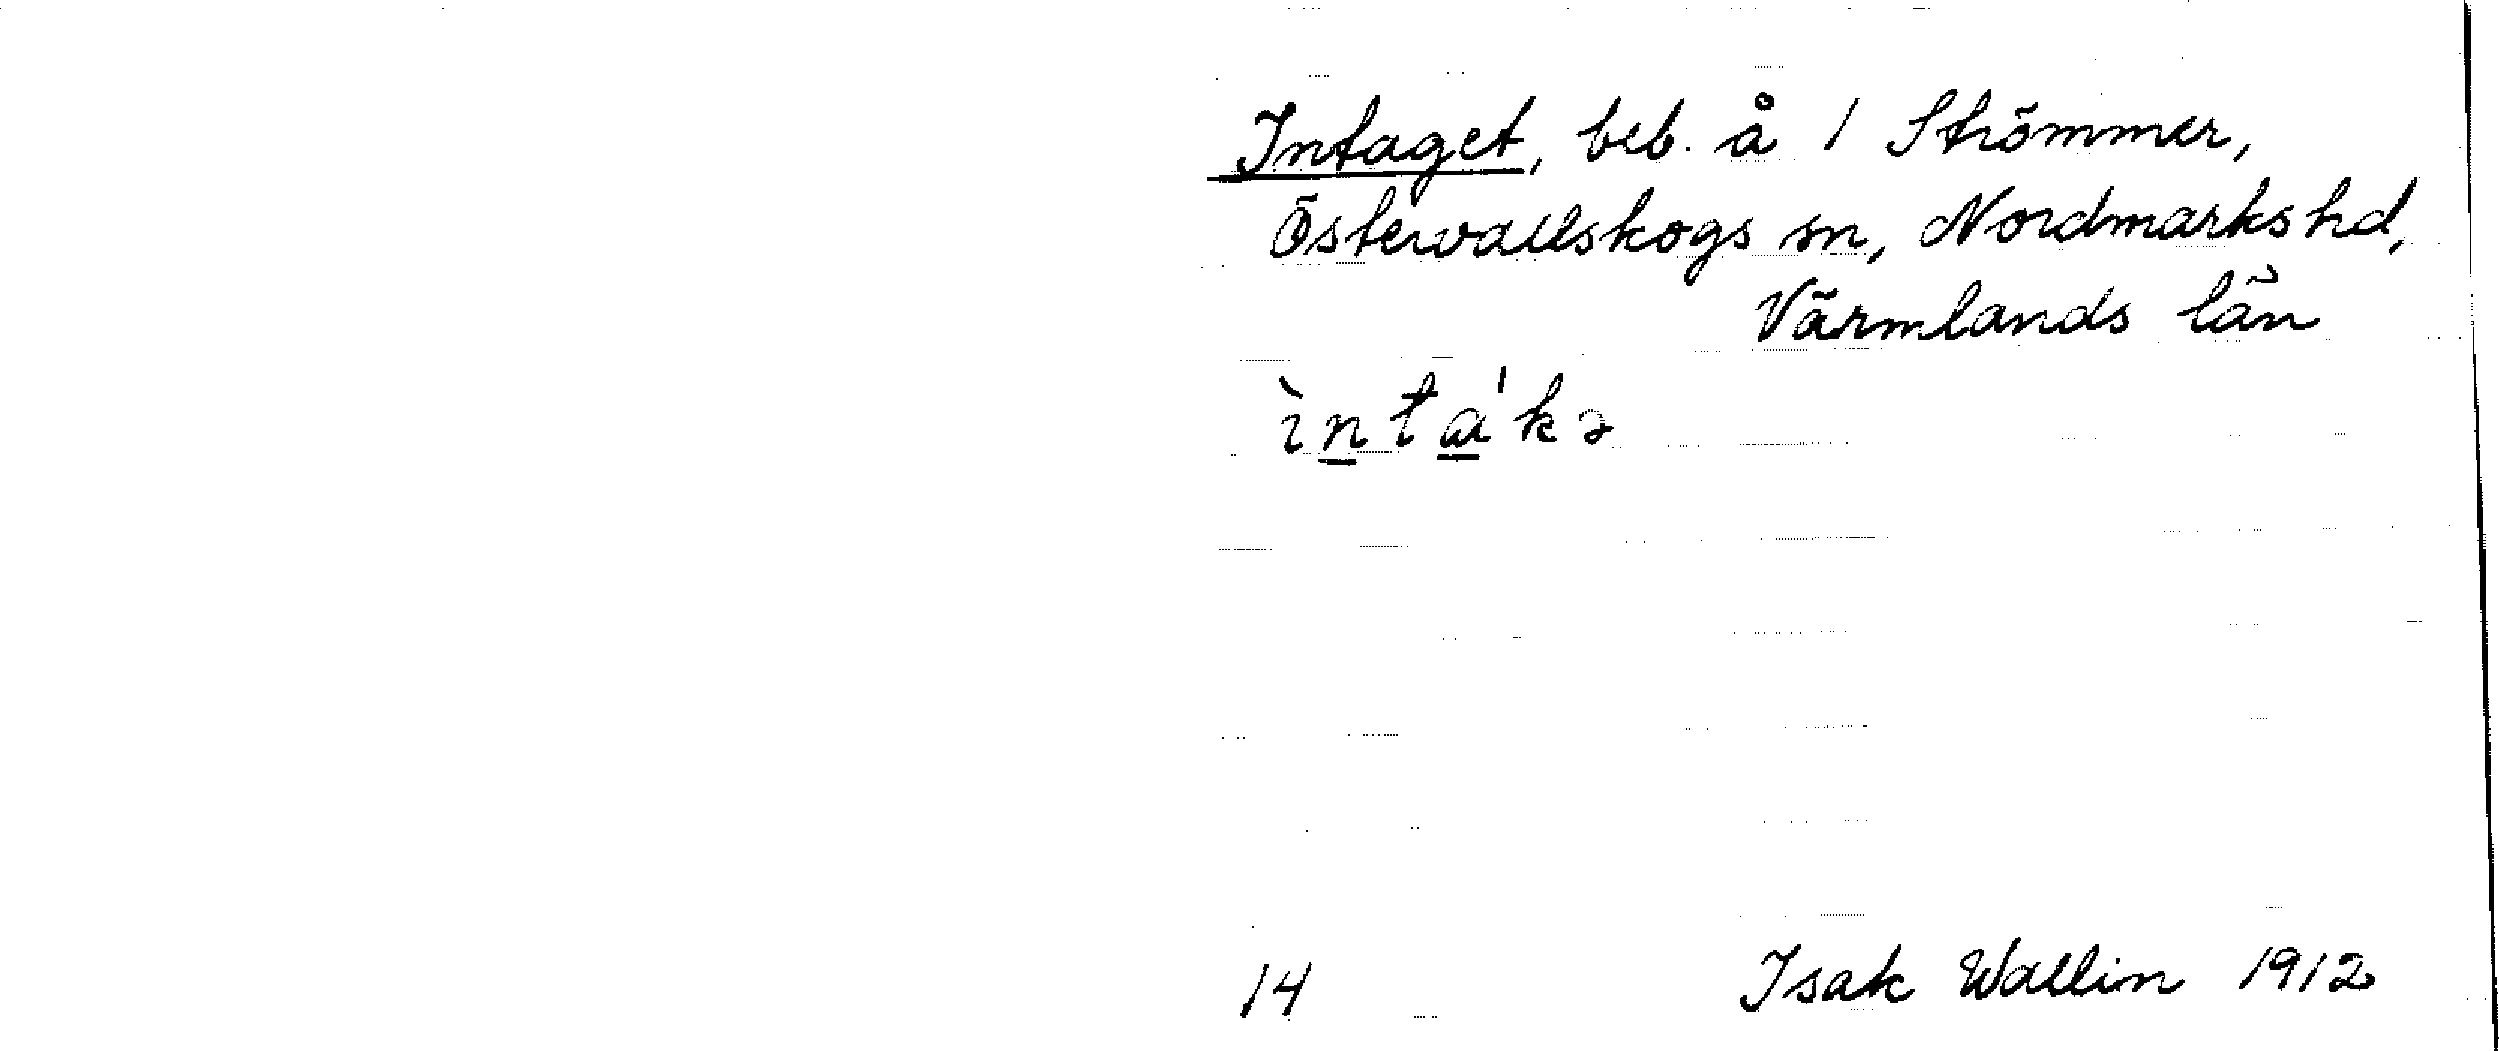 Intaget, beb. å 1 Strömmer,
Östervallskogs sn, Nordmarks hd,
Värmlands län
ìnta'kə
14 Isak Wallin 1912